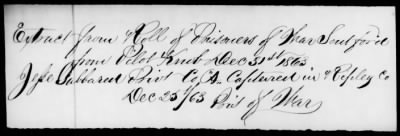 Extract from "Roll of Prisoners of War Sent for'd
from Pilot Knob Dec 31st 1863
Jesse Hubbard Privt Co A. Captured in "Ripley Co
Dec 25th/63 Pris of War